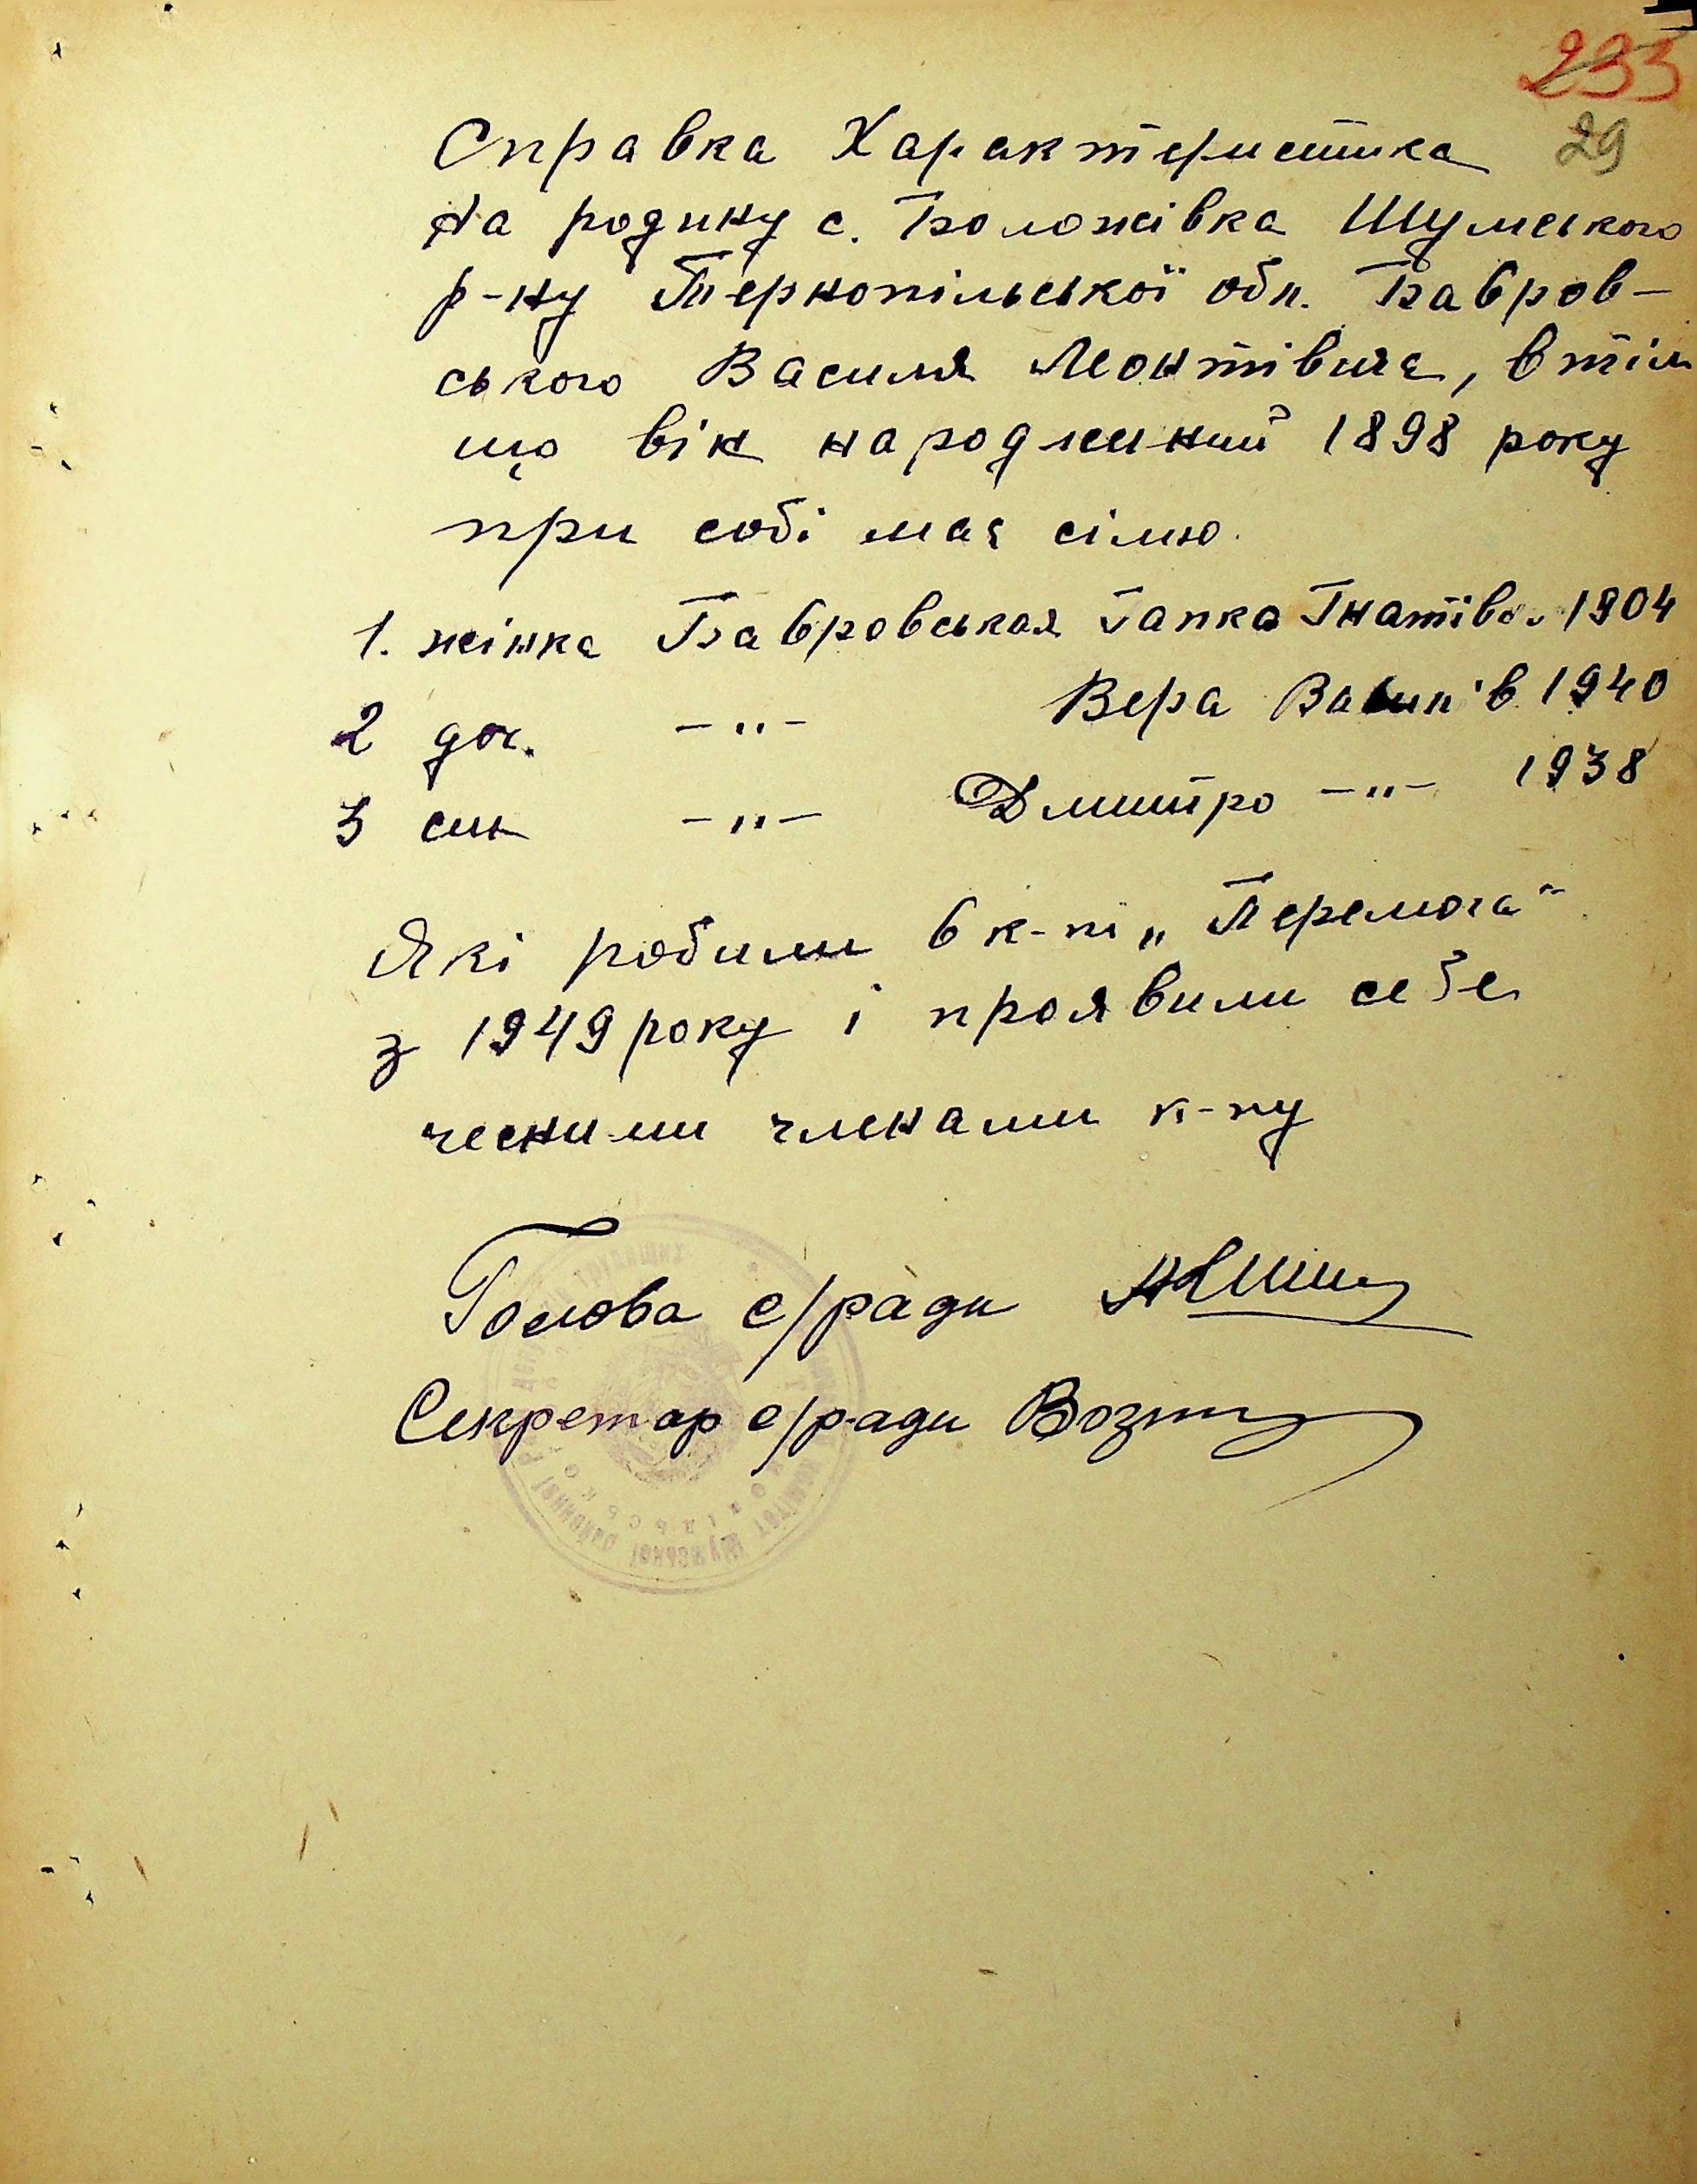 233
29
Справка Характеристика
На родину с. Боложівка Шумського
р-ну Тернопільської обл. Бавров-
ського Василя Леонтівича, втім
що він народжений 1898 року
при собі має сімю.
1. жінка Бавровськая Гапка Гнатівн 1904
2 доч. -"- Вера Васил'в 1940
3 син -"- Дмитро -"- 1938
Які робили в к-пі „Перемога"
з 1949 року і проявили себе
чесними членами к-пу
Голова с/ради
Секретар с/ради